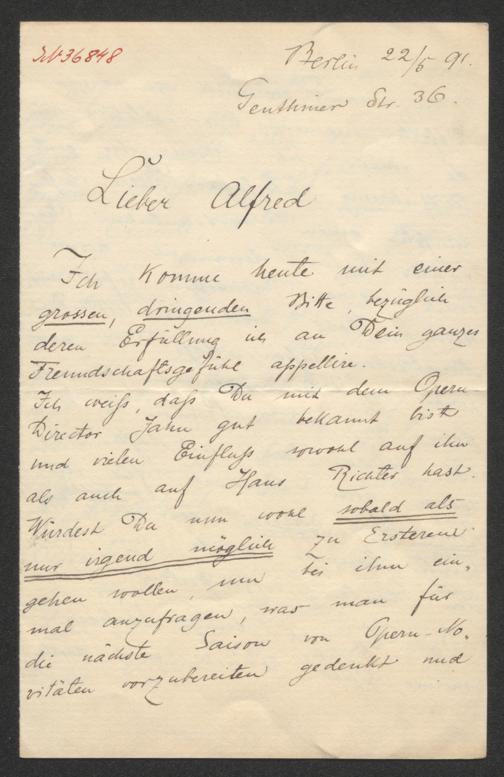 IN 36848
Berlin 22/5 91.
Genthiner Str. 36.
Lieber Alfred
Ich komme heute mit einer
grossen, dringenden Bitte, bezüglich
deren Erfüllung ich an Dein ganzes
Freundschaftsgefühl appellire.
Ich weiß, daß Du mit dem Opern
Director Jahn gut bekannt bist
und vielen Einfluß sowohl auf ihn
als auch auf Hans Richter hast.
Würdest Du nun wohl sobald als
nur irgend möglich zu Ersterem
gehen wollen, um bei ihm ein-
mal anzufragen, was man für
die nächste Saison von Opern-No-
vitäten vorzubereiten gedenkt und